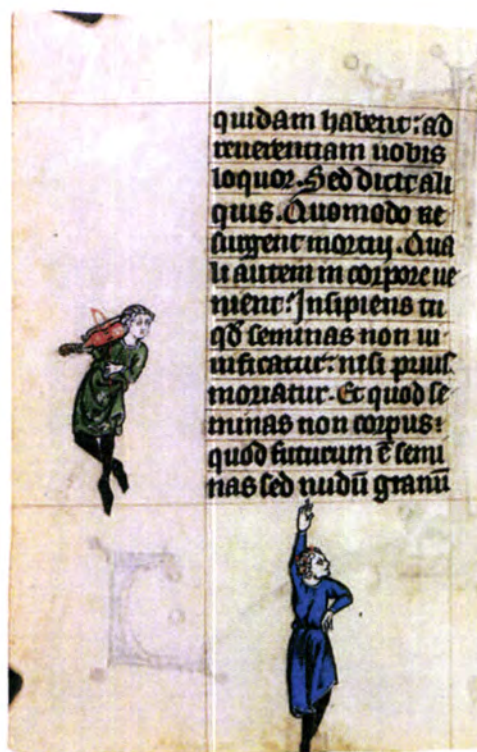 quidam habent: ad
reuerentiam uobis
loquor. Sed dicet ali
quis. Quomodo re
surgent mortui. Qua
li autem in corpore ue
nient: Insipiens tu
qđ seminas non ui
uificatur: nisi prius
moriatur. Et quod se
minas non corpus:
quod futurum ē semi
nas sed nudū granū